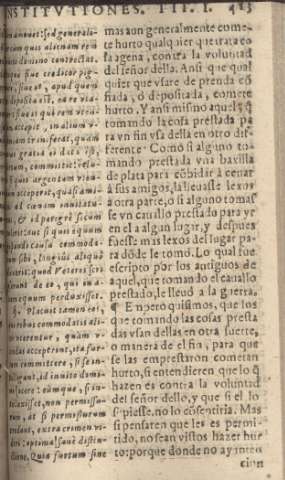 INSTITVTIONES. III. I. 413
movet: sed generali-
quis alienam rem
domino contrectat.
sive creditor pig-
sive is, apud quem
deposita est, ea re vta-
sive is qui rem vten-
accepit, in alium v-
transferat, quàm
gratia ei data est,
committit: veluti
quis argentum vten-
acceperit, quasi ami-
ad cœnam inuitatu-
& id peregrè secum
tulerit: aut si quis equum
causa commoda-
sibi, longius aliquò
quod Veteres scri-
de eo, qui in a-
equum perduxisset.
§. Placuit tamen eos,
rebus commodatis ali-
vterentur, quàm v-
acceperint, ita fur-
committere, si se in-
, id inuito domi-
facere: eumque, si in-
, non permissu-
at si permissurum
, extra crimen vi-
: optima sanè distin-
Quia furtum sine
mas aun generalmente come-
te hurto qualquier que trata co-
sa agena, contra la voluntad
del señor della. Ansi que qual
quier que vsare de prenda cõ
fiada, ò depositada, comete
hurto. Y ansi mismo aquel q̃
tomando la cosa prestada pa
ra vn fin vsa della en otro dif-
ferente. Como si alguno to-
mando prestada vna baxilla
de plata para cõbidar à cenar
à sus amigos, la lleuasse lexos
a otra parte, o si alguno tomas
se vn cauallo prestado para yr
en el a algun lugar, y despues
fuesse mas lexos del lugar pa-
ra dõde le tomò. Lo qual fue
escripto por los antiguos de
aquel, que tomando el cauallo
prestado, le lleuò a la guerra.
¶ Empero quisimos, que los
que tomando las cosas presta
das vsan dellas en otra suerte,
o manera de el fin, para que
se las emprestaron cometan
hurto, si entendieren que lo q̃
hazen es contra la voluntad
del señor dello, y que si el lo
supiesse, no lo cõsentiria. Mas
si pensaren que les es permi-
tido, no sean vistos hazer hur
to: porque donde no ay inten
cion